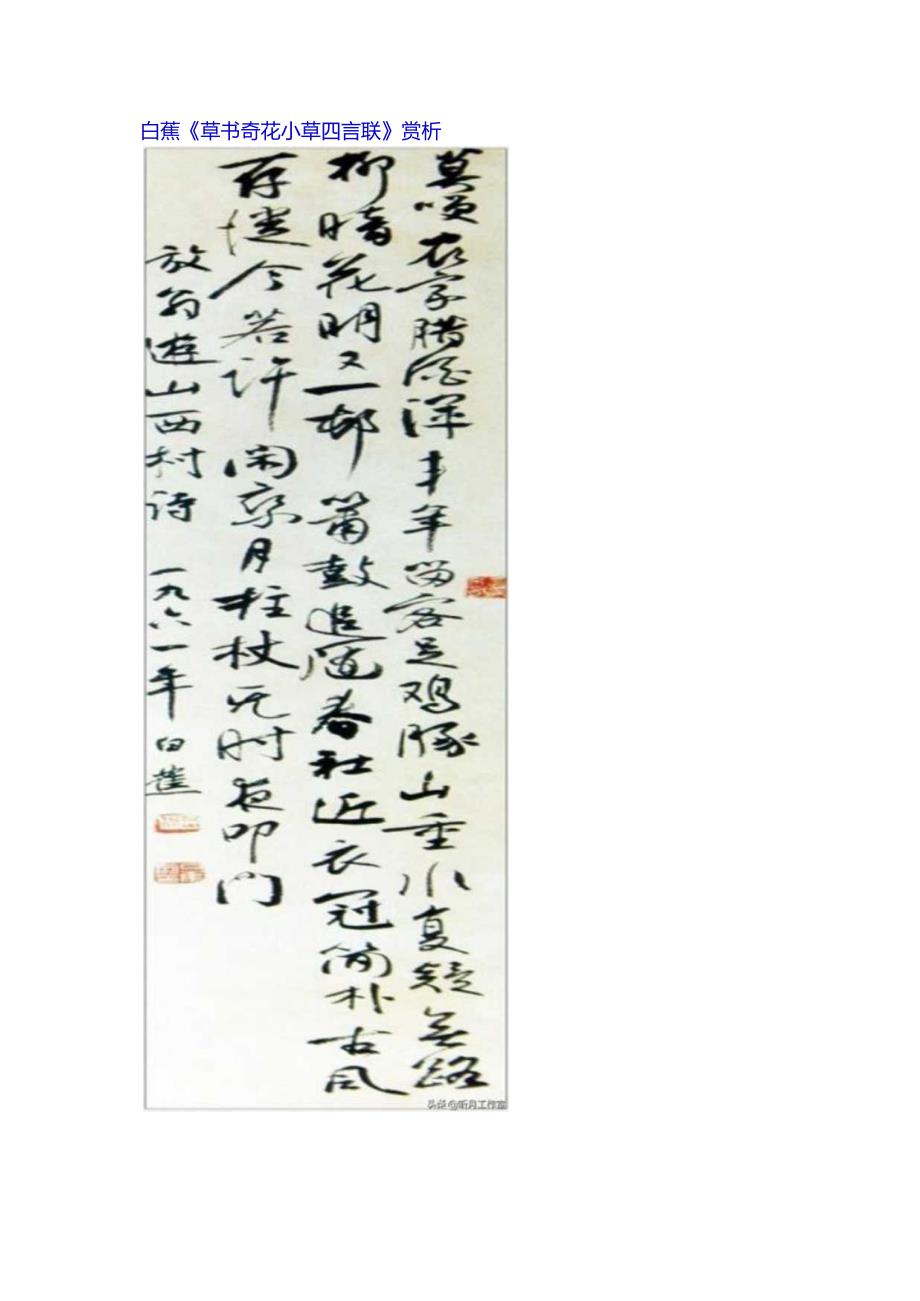 白蕉《草书奇花小草四言联》赏析
莫咲农家腊酒浑丰年留客足鸡豚山重水复疑无路
柳暗花明又一邨箫鼓追随春社近衣冠简朴古风
存從今若许闲乘月拄杖无时夜叩门
放翁遊山西村诗 一九六一年 白蕉
头条@昕月工作室